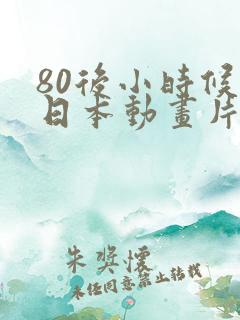 80後小時候
日本動畫片
朱奨懷
未經同意禁止轉載